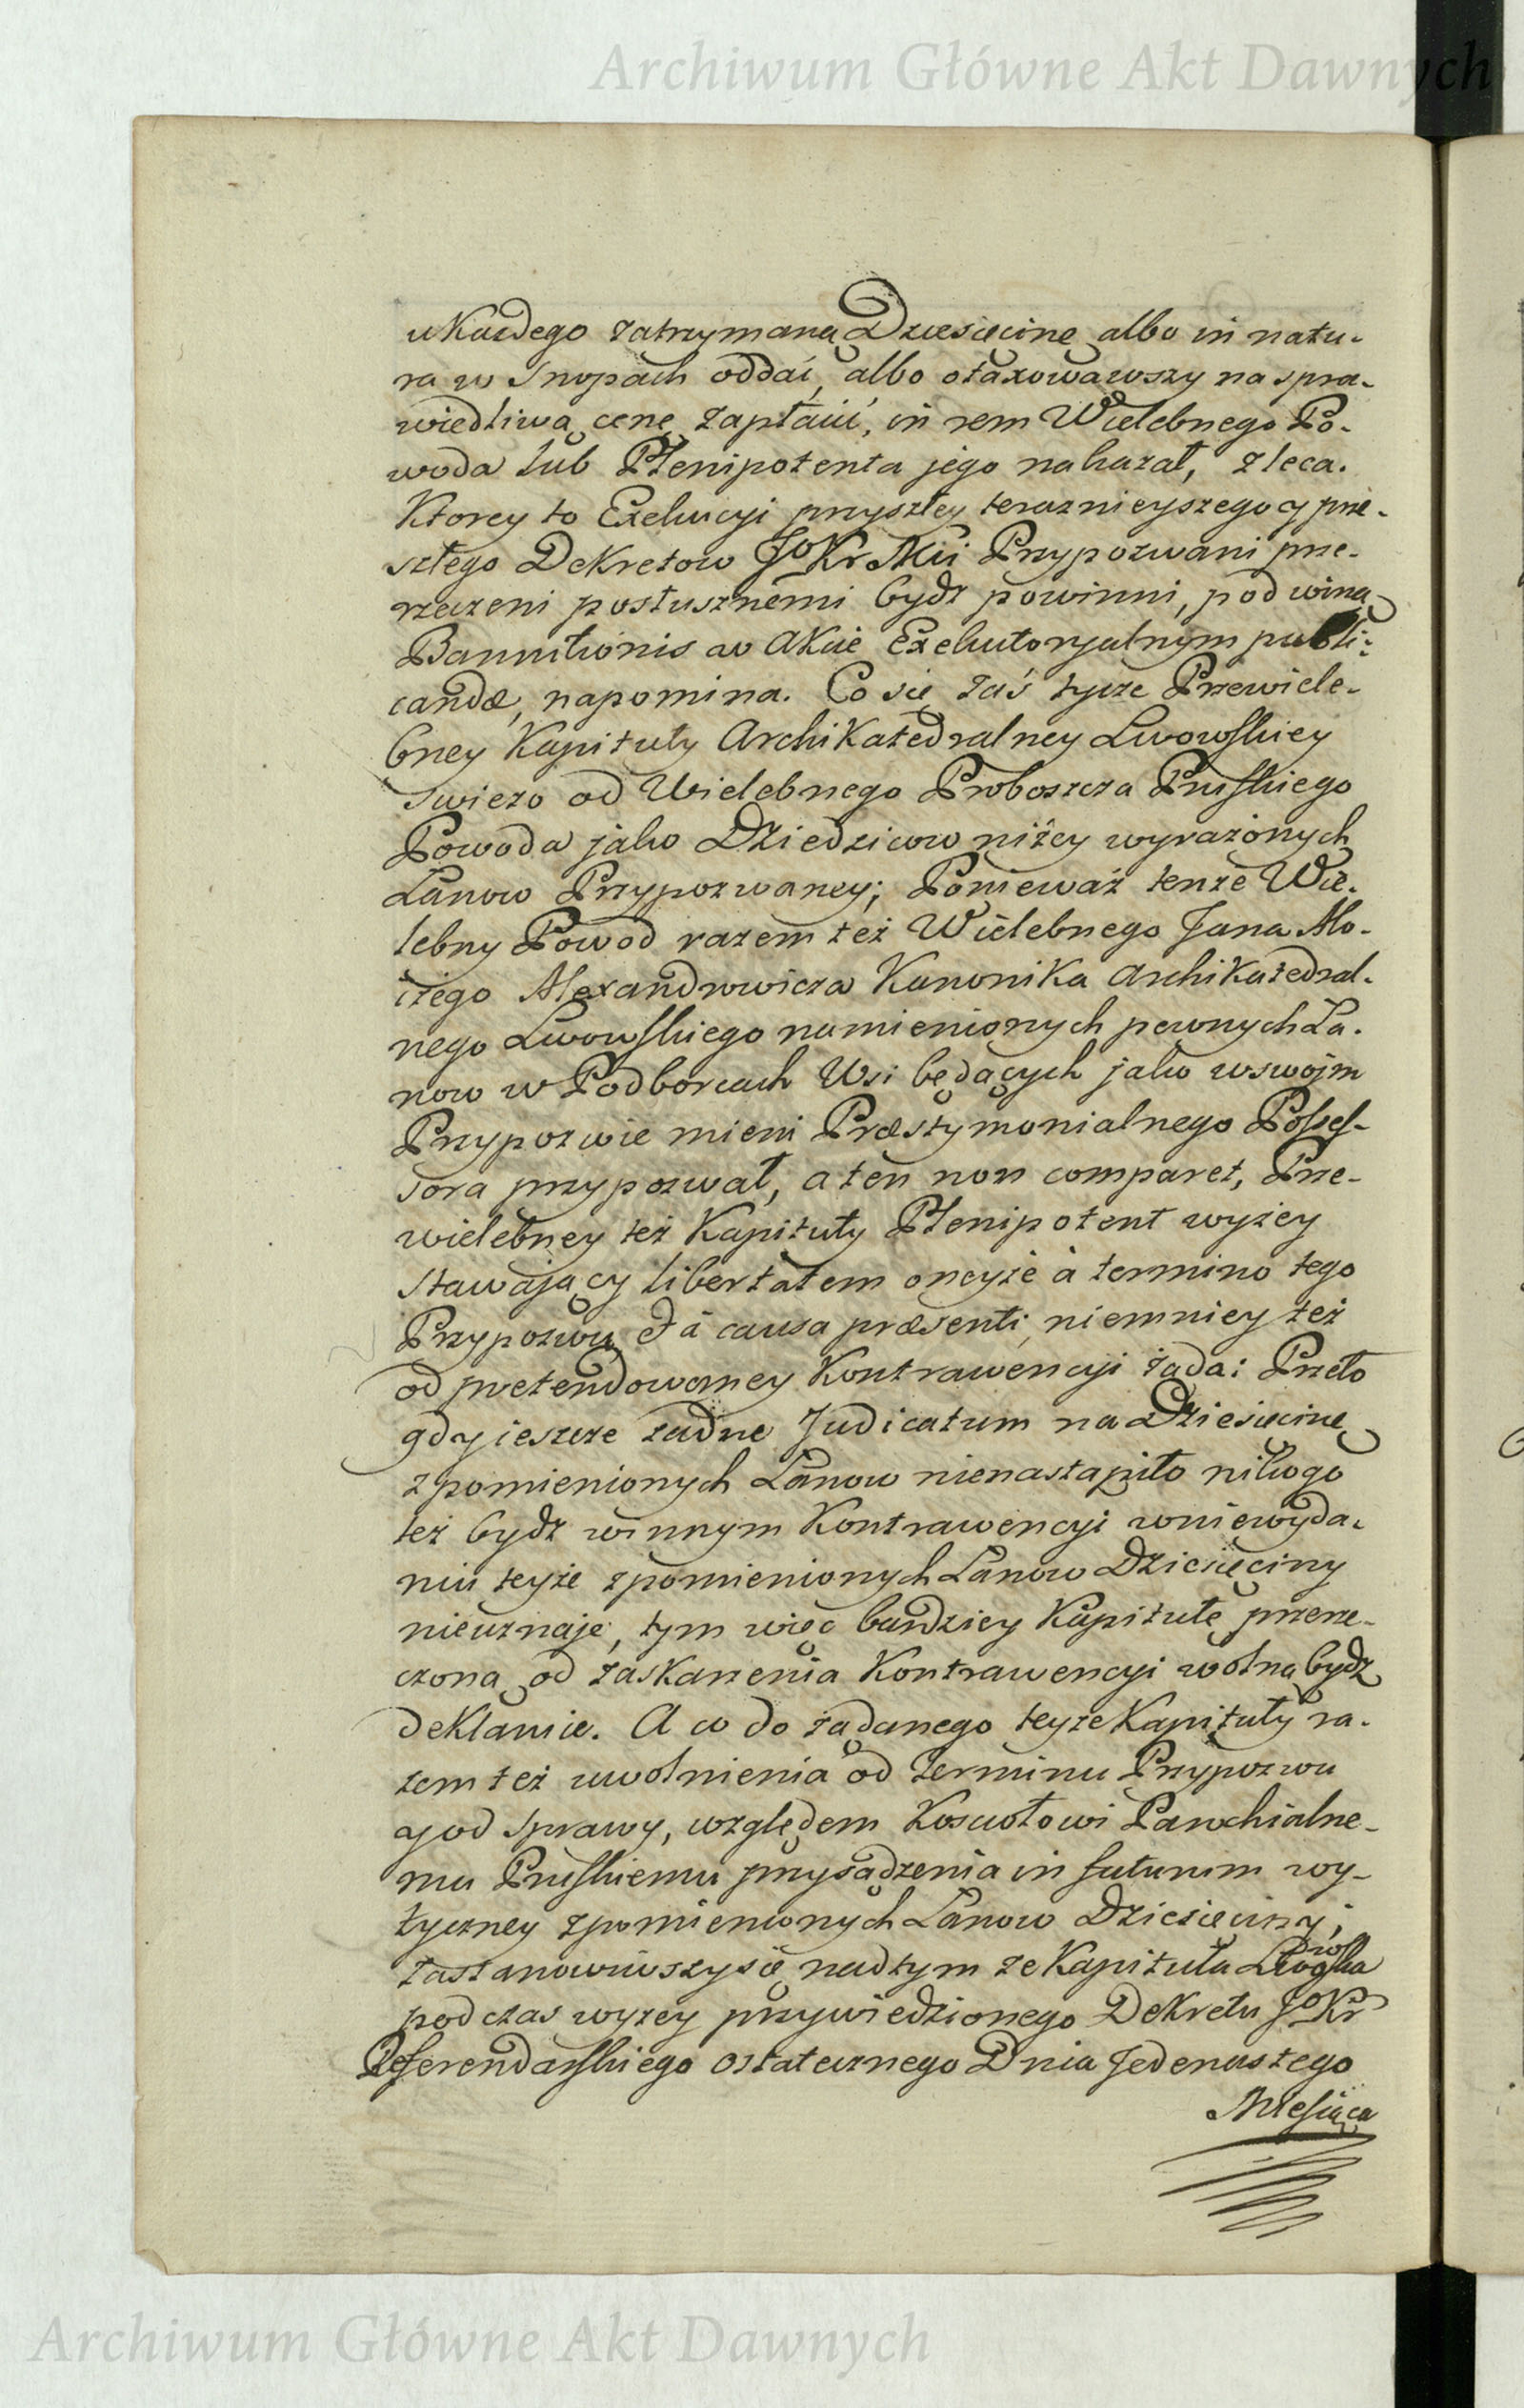 Archiwum Główne Akt Dawnych
ukażdego zatrzymaną Dziesięcinę albo in natu-
ra w Snopach oddać, albo otaxowawszy na spra-
wiedliwą cenę zapłacić, in rem Wielebnego Po-
woda lub Plenipotenta jego nakazał, zleca.
Ktorey to Exekucyi przyszłey teraznieyszego y prze-
szłego Dekretow JoKrMci Przypozwani prze-
rzeczeni posłusznemi bydz powinni, pod winą
Bannitionis w Akcie Exekutoryalnym publi-
candæ, napomina. Co się zaś tycze Przewiele-
bney Kapituły Archikatedralney Lwowskiey
swiezo od Wielebnego Proboszcza Pruskiego
Powoda jako Dziedzicow niżey wyrażonych
Łanow Przypozwaney; Ponieważ tenże Wie-
lebny Powod razem też Wielebnego Jana Alo-
izego Alexandrowicza Kanonika Archikatedral-
nego Lwowskiego namienionych pewnych Ła-
now w Podborcach Wsi będących jako wswojm
Przypozwie mieni Præstymonialnego Posses-
sora przypozwał, a ten non comparet, Prze-
wielebney też Kapituły Plenipotent wyżey
stawający libertatem oneyże à termino tego
Przypozwu et à causa præsenti, niemniey też
od pretendowaney Kontrawencyi żąda: Przeto
gdy ieszcze żadne Judicatum na Dziesięcinę
z pomienionych Łanow nienastąpiło nikogo
też bydz winnym Kontrawencyi wniewyda-
niu teyże zpomienionych Łanow Dziesięciny
nieuznaje, tym więc bardziey Kapitułę przerze-
czoną od zaskarżenia Kontrawencyi wolną bydz
deklaruie. A co do żądanego teyże Kapituły ra-
zem też uwolnienia od Terminu Przypozwu
y od sprawy, względem Kosciołowi Parochialne-
mu Pruskiemu przysądzenia in futurum wy-
tyczney zpomienionych Łanow Dziesięciny;
zastanowiwszy się nadtym ze Kapituła Lwowska
podczas wyżey przywiedzionego Dekretu JoKr
Referendarskiego ostatecznego Dnia Jedenastego
Miesiąca
Archiwum Główne Akt Dawnych